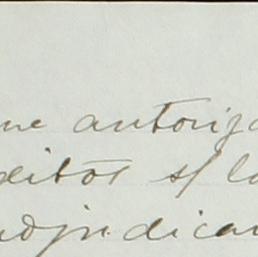 me autoriza
ditos s/ la
adjudican